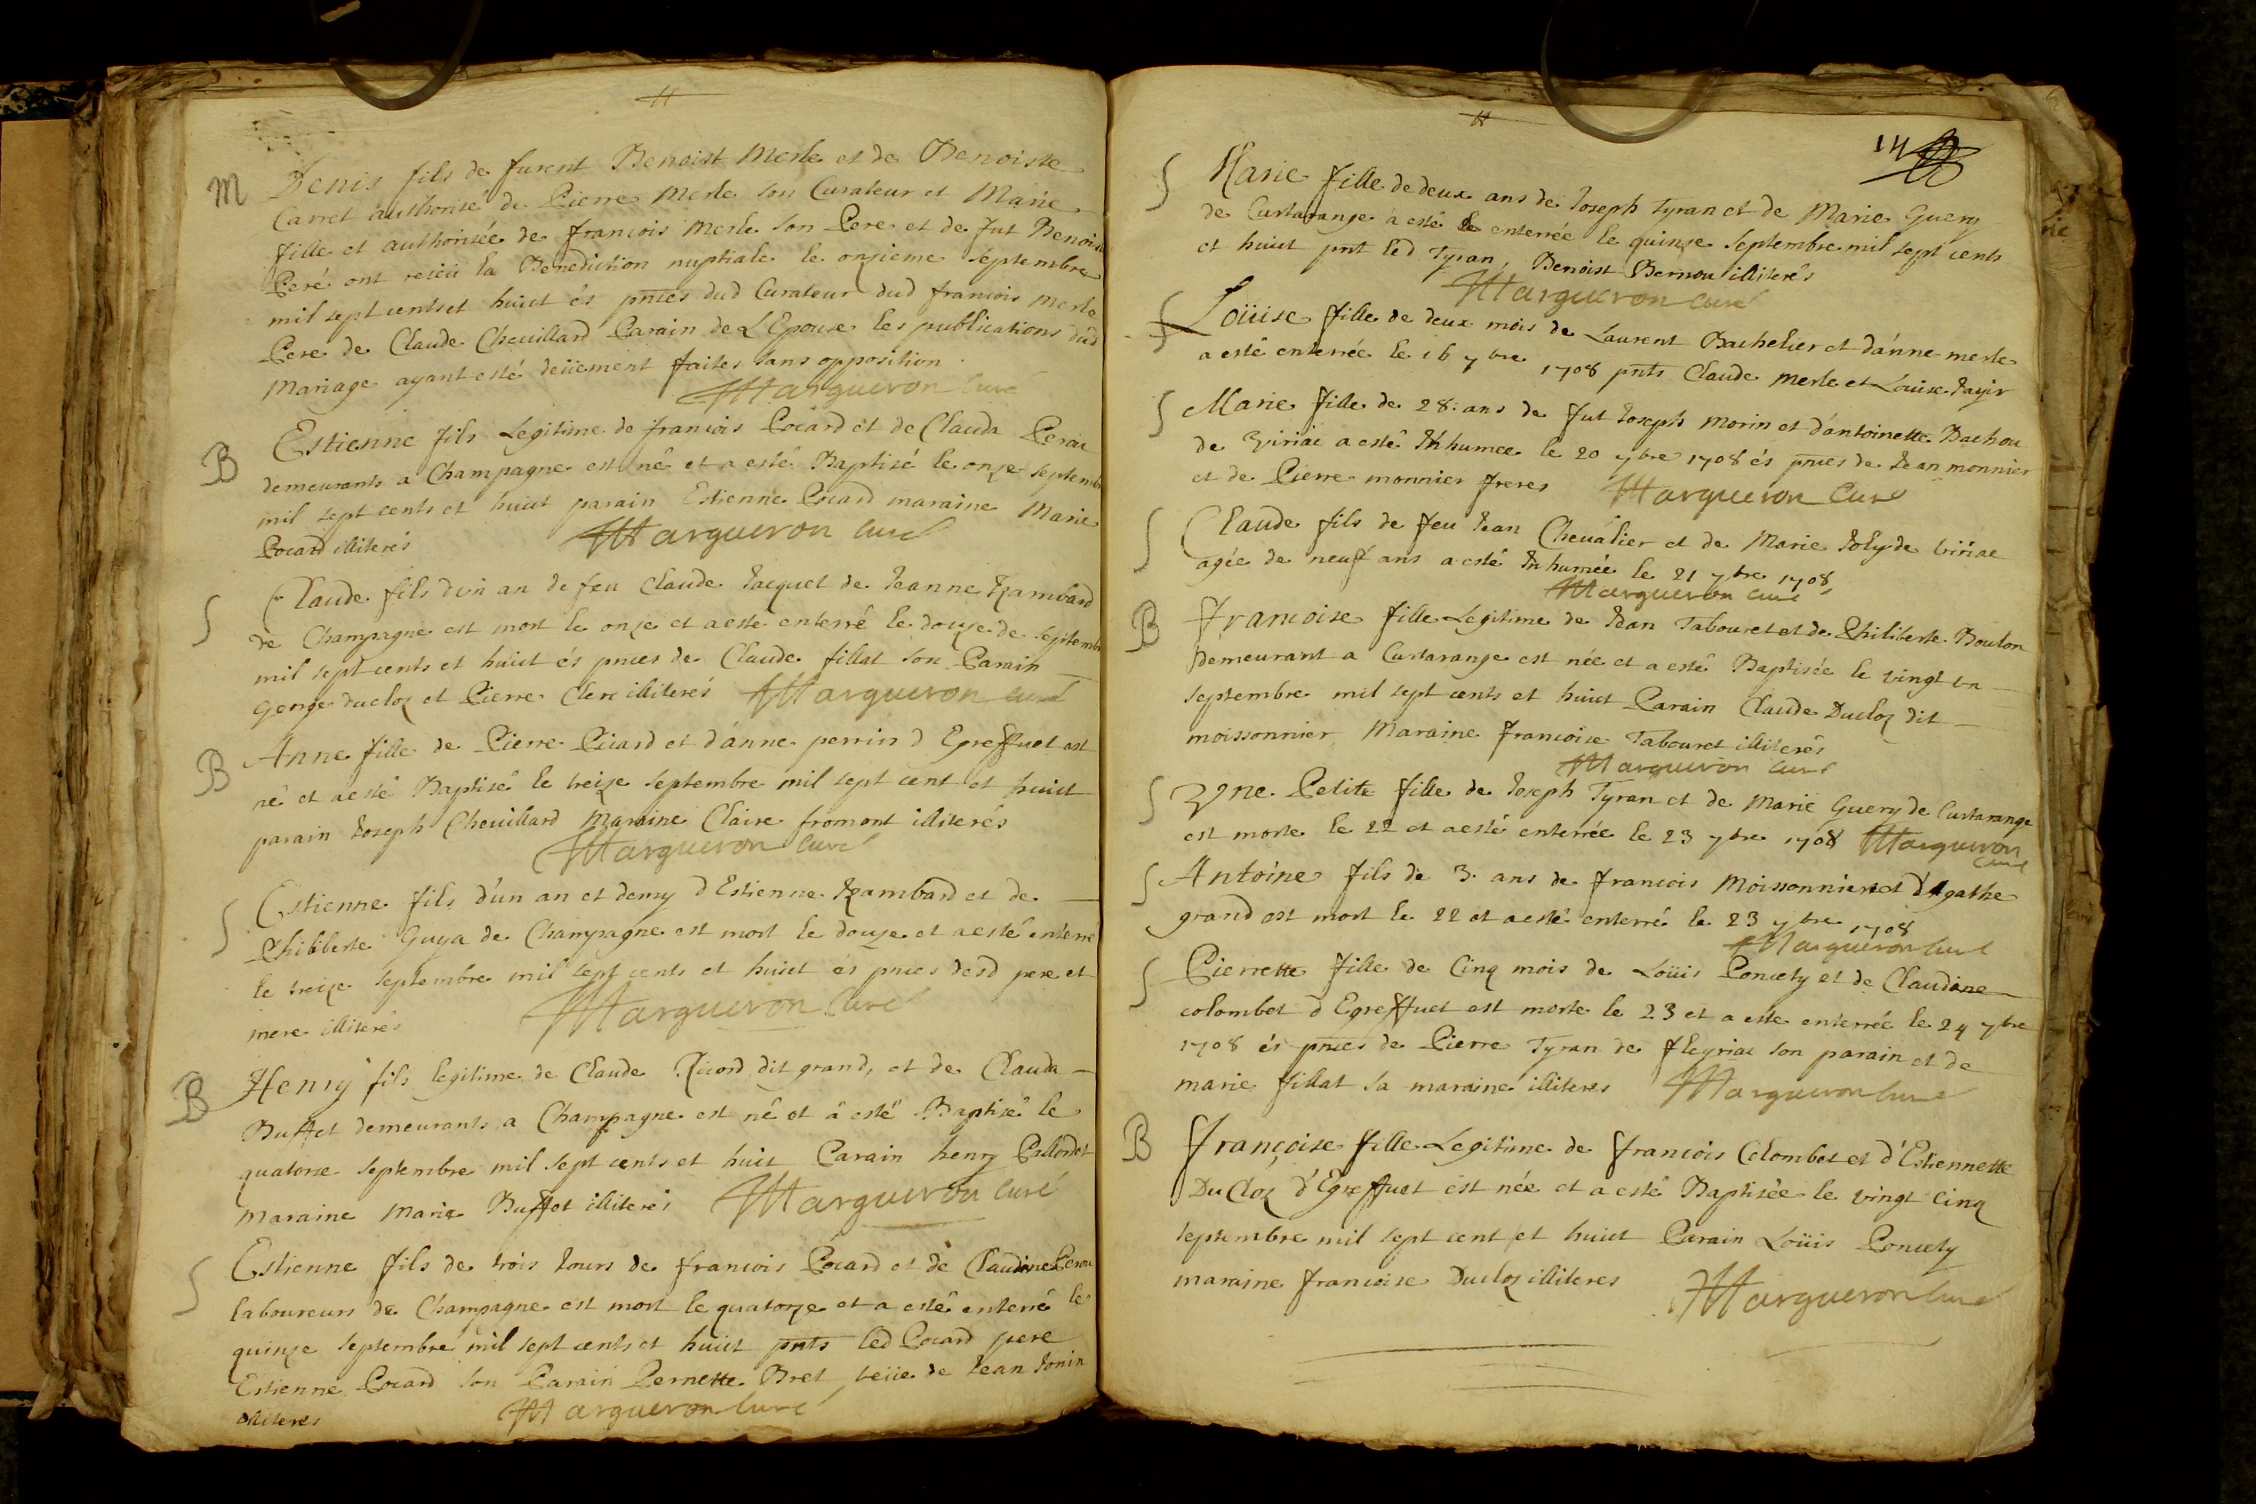 M Denis fils de furent Benoist Merle et de Benoiste
Carret authorisé de Pierre Merle son Curateur et Marie
fille et authorisée de francois Merle son Pere et de fut Benoiste
Peré ont receü la Benediction nuptiale le onzieme septembre
mil sept cents et huict és pnces dud Curateur dud francois Merle
Pere de Claude Cheuillard Parain de L Epouse les publications dud
Mariage ayant esté deüement faites sans opposition
Margueron Curé
B Estienne fils Legitime de francois Pocard et de Clauda
demeurants a Champagne est né et a esté Baptisé le onze septemb
mil sept cents et huict parain Estienne Pocard maraine Marie
Pocard illiterés Margueron Curé
S Claude fils d'un an de feu Claude Jacquet de Jeanne Rambard
de Champagne est mort le onze et a esté enterré le douze de septemb
mil sept cents et huict és pnces de Claude fillat son Parain
George ducloz et Pierre Clerc illiterés Margueron Curé
B Anne fille de Pierre Picard et d'anne perrin d Egreffuet est
né et a esté Baptisé le treize septembre mil sept cent et huict
parain Joseph Cheuillard Maraine Claire fromont illiterés
Margueron Curé
S Estienne fils d'un an et demy d Estienne Rambard et de
Philiberte Guya de Champagne est mort le douze et a esté enterré
le treize septembre mil sept cents et huict és pnces desd pere et
mere illiterés Margueron Curé
B Henry fils legitime de Claude Ricord dit grand, et de Clauda
Buffet demeurants a Champagne est né et a esté Baptisé le
quatorze septembre mil sept cents et huit Parain henry
Maraine Marie Buffet illiterés Margueron Curé
S Estienne fils de trois Jours de francois Pocard et de Claudine
laboureurs de Champagne est mort le quatorze et a esté enterré le
quinze septembre mil sept cents et huict pnts led Pocard pere
Estienne Pocard son Parain Pernette Bret veüe de Jean Jonin
illiteres Margueron Curé
14
S Marie fille de deux ans de Joseph Tyran et de Marie Guery
de Curtarange a esté enterrée le quinze septembre mil sept cents
et huict pnt led Tyran, Benoist Bernou illiterés
Margueron Curé
S Loüise fille de deux mois de Laurent Bachelier et d'anne merle
a esté enterrée le 16 7bre 1708 pnts Claude Merle et Louise
S Marie fille de 28. ans de fut Joseph Morin et d'antoinette Bachou
de Viriac a esté Inhumee le 20 7bre 1708 és pnces de Jean monnier
et de Pierre monnier freres Margueron Curé
S Claude fils de feu Jean Cheualier et de Marie Joly de viriac
agée de neuf ans a esté Inhumée le 21 7bre 1708
Margueron curé
B francoise fille Legitime de Jean Tabouret et de Philiberte Boulon
demeurant a Curtarange est née et a esté Baptisée le vingt un
septembre mil sept cents et huict Parain Claude Ducloz dit
moissonnier Maraine francoise Tabouret illiterés
Margueron curé
S Vne Petite fille de Joseph Tyran et de Marie Guery de Curtarange
est morte le 22 et a esté enterrée le 23 7bre 1708 Margueron
Curé
S Antoine fils de 3. ans de francois Moissonnier et d'Agathe
grand est mort le 22 et a esté enterré le 23 7bre 1708
Margueron Curé
S Pierrette fille de Cinq mois de Loüis Poncety et de Claudine
colombet d Egreffuet est morte le 23 et a esté enterrée le 24 7bre
1708 és pnces de Pierre Tyran de fleyriac son parain et de
marie fillat sa maraine illiteres Margueron Curé
B françoise fille Legitime de francois Colombet et d'Estiennette
DuCloz d'Egreffuet est née et a esté Baptisée le vingt cinq
septembre mil sept cent et huict Parain Loüis Poncety
maraine francoise Ducloz illiteres Margueron Curé